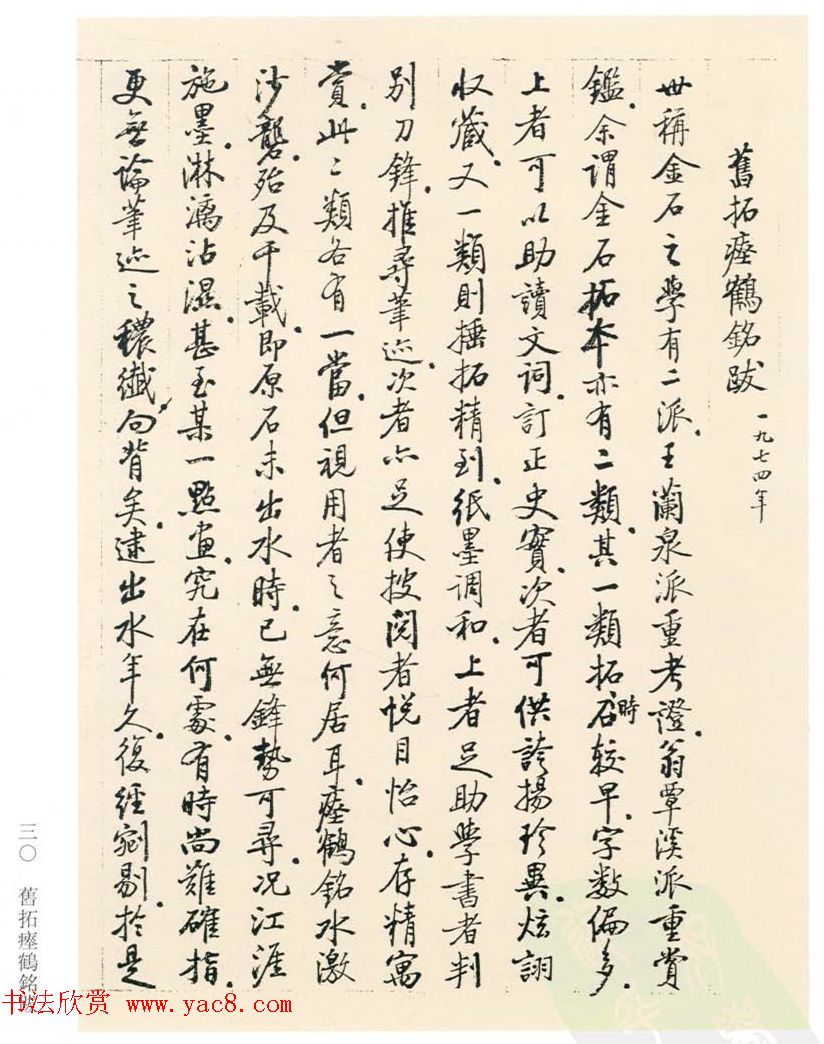 舊拓瘗鶴銘跋 一九七四年
世稱金石之學有二派。王蘭泉派重考證。翁覃溪派重賞
鑑。余謂金石拓本亦有二類。其一類拓時較早。字數偏多。
上者可以助讀文詞。訂正史實。次者可供誇揚珍異。炫詡
收藏。又一類則捶拓精到。紙墨調和。上者足助學書者判
别刀鋒。推尋筆迹。次者亦足使披閱者悦目怡心。存精寓
賞。此二類各有一當。但視用者之意何居耳。瘗鶴銘水激
沙礱。殆及千載。即原石未出水時。已無鋒勢可尋。况江涯
施墨。淋漓沾濕。甚至某一點畫。究在何處。有時尚難確指。
更無論筆迹之穠纖向背矣。逮出水年久。復經剜剔。於是
三〇 舊拓瘗鶴銘跋
书法欣赏 www.yac8.com